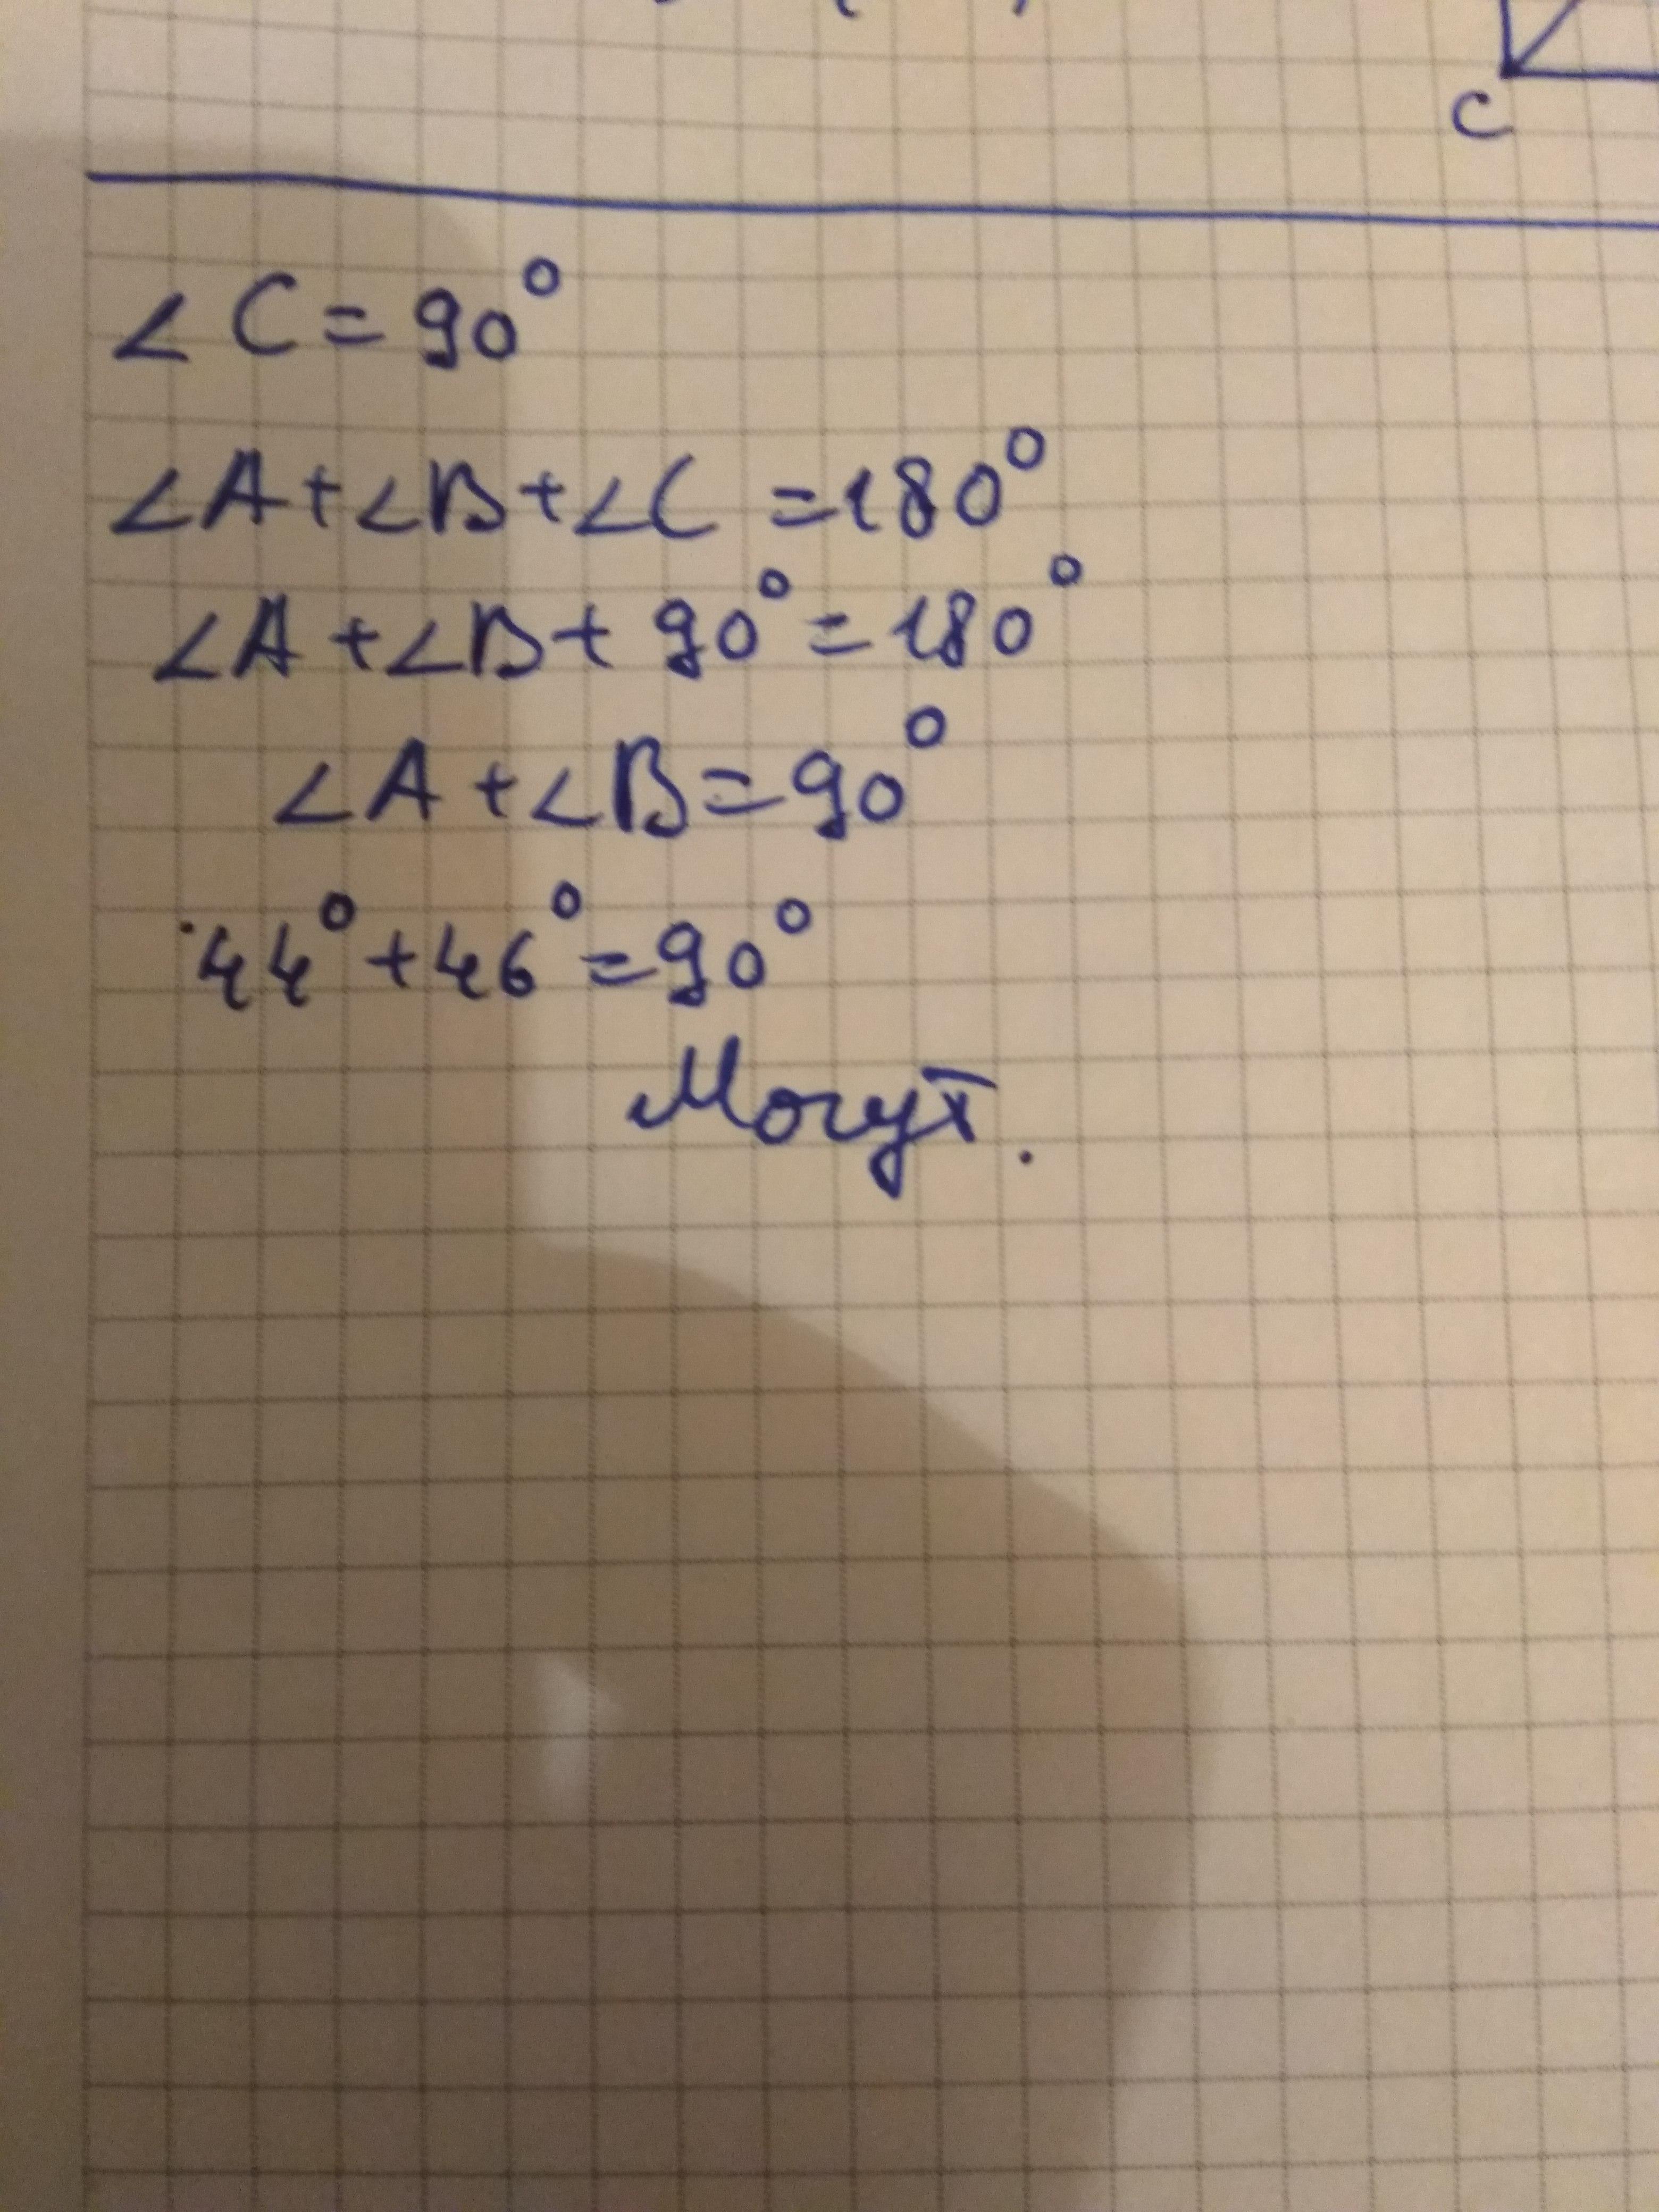 C
∠C=90°
∠A+∠B+∠C=180°
∠A+∠B+90°=180°
∠A+∠B=90°
44°+46°=90°
Могут.